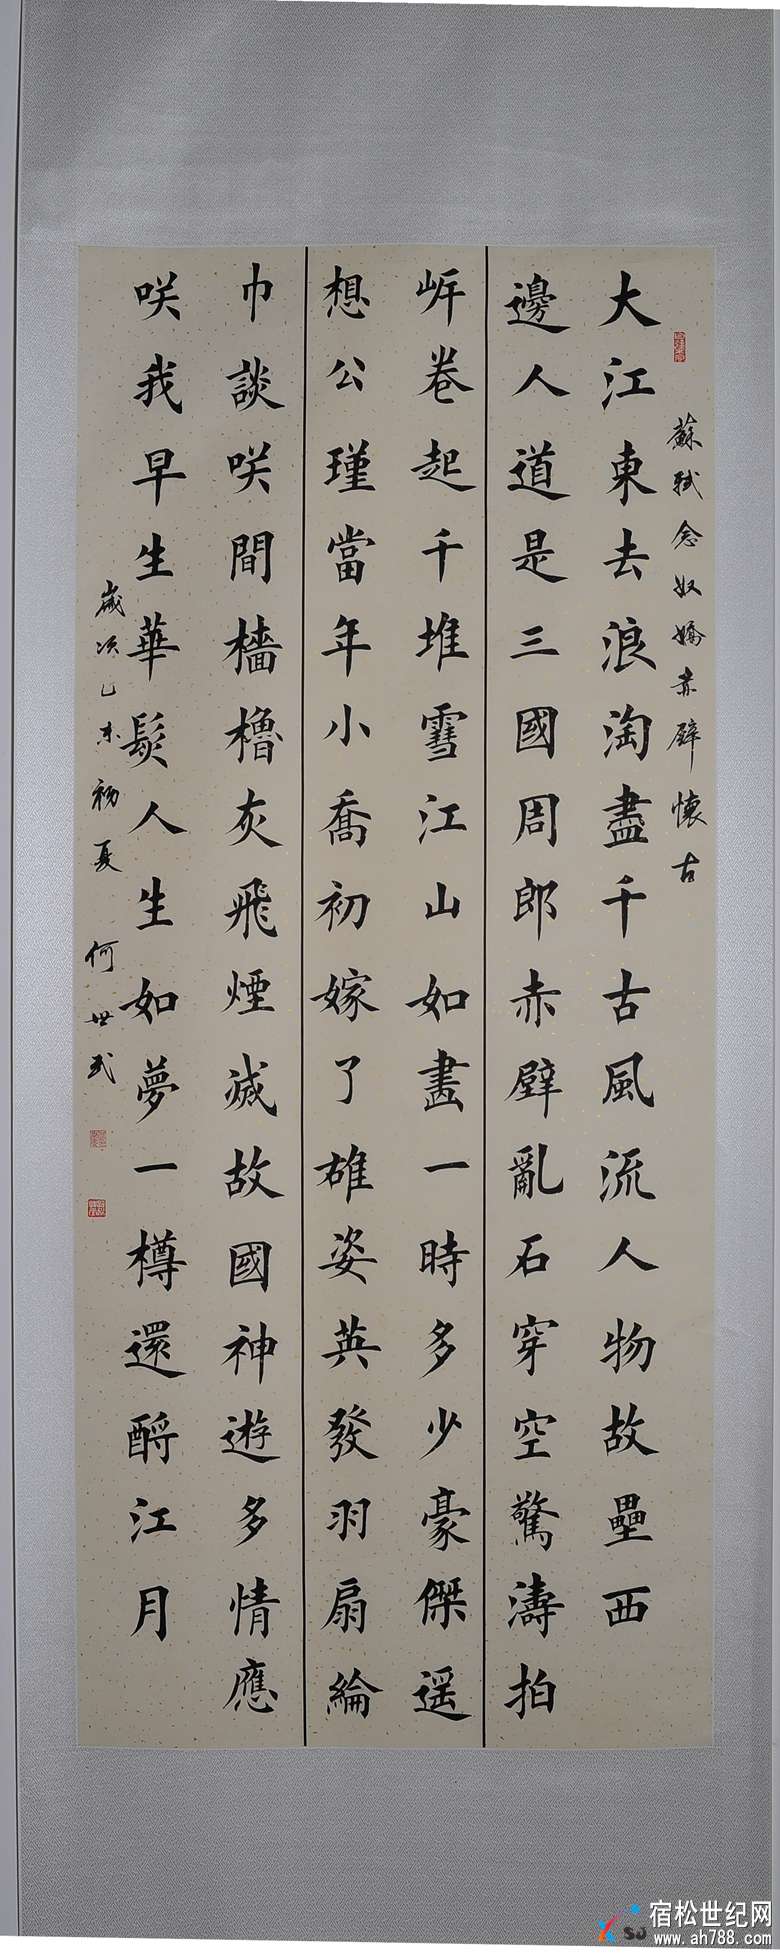 蘇軾念奴嬌赤壁懷古
大江東去浪淘盡千古風流人物故壘西
邊人道是三國周郎赤壁亂石穿空驚濤拍
岸卷起千堆雪江山如畫一時多少豪傑遥
想公瑾當年小喬初嫁了雄姿英發羽扇綸
巾談咲間檣櫓灰飛煙滅故國神遊多情應
咲我早生華髮人生如夢一樽還酹江月
歲次己未初夏 何世武
宿松世纪网
www.ah788.com